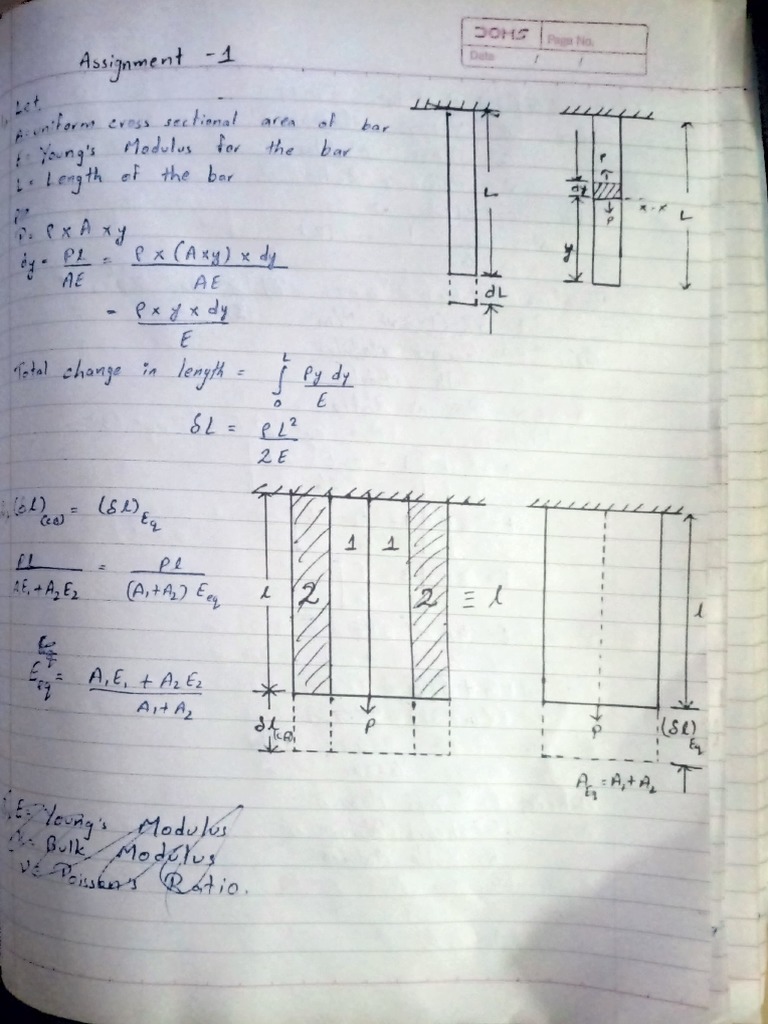 DOMS
Page No.
Date / /
Assignment - 1
Let,
A = uniform cross sectional area of bar
E = Young's Modulus for the bar
L = Length of the bar
P = ρ x A x y
dy = Pl/AE = ρ x (A x y) x dy / AE
= ρ x y x dy / E
Total change in length = ∫₀ᴸ ρy dy / E
δL = ρL² / 2E
L
dL
P
dy
P
x-x
y
L
(δl)(CB) = (δl)Eq
Pl / A₁E₁+A₂E₂ = Pl / (A₁+A₂) Eeq
Eeq = A₁E₁ + A₂E₂ / A₁+A₂
l
2
1
1
2
≡ l
l
δl(CB)
P
P
(δl)Eq
AEq = A₁+A₂
E = Young's Modulus
Bulk Modulus
Poisson's Ratio.